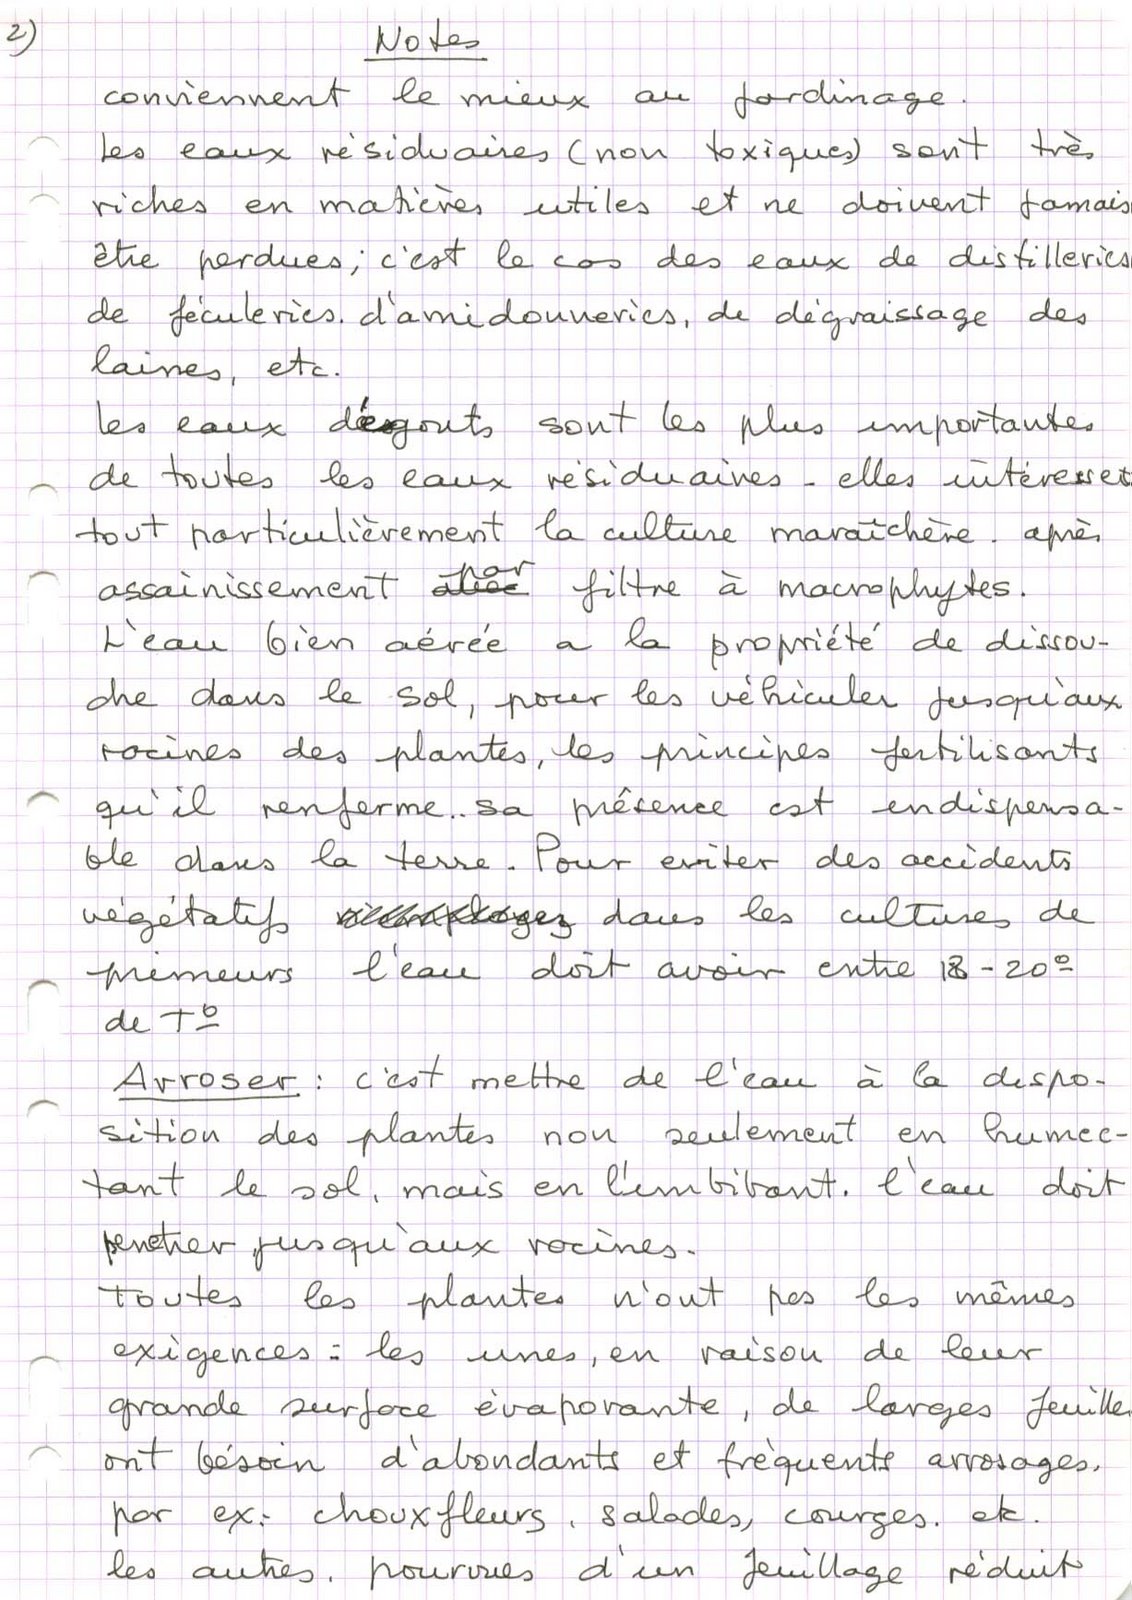 2)
Notes
conviennent le mieux au jardinage.
Les eaux résiduaires (non toxiques) sont très
riches en matières utiles et ne doivent jamais
être perdues; c'est le cas des eaux de distilleries
de féculeries. d'amidonneries, de dégraissage des
laines, etc.
les eaux d'égouts sont les plus importantes
de toutes les eaux résiduaires - elles intéresset
tout particulièrement la culture maraîchère. après
assainissement par filtre à macrophytes.
L'eau bien aérée a la propriété de dissou-
dre dans le sol, pour les véhiculer jusqu'aux
racines des plantes, les principes fertilisants
qu'il renferme.. sa présence est endispensa-
ble dans la terre. Pour eviter des accidents
végétatifs dans les cultures de
primeurs l'eau doit avoir entre 18-20º
de Tº
Arroser : c'est mettre de l'eau à la dispo-
sition des plantes non seulement en humec-
tant le sol, mais en l'imbibant. l'eau doit
penetrer jusqu'aux racines.
Toutes les plantes n'ont pas les mêmes
exigences : les unes, en raison de leur
grande surface évaporante, de larges feuille
ont bésoin d'abondants et fréquents arrosages.
par ex: chouxfleurs, salades, courges. etc.
les autres. pourvues d'un feuillage réduit